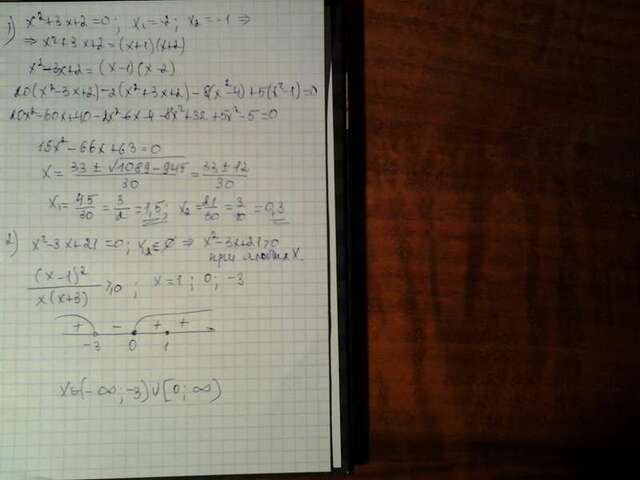 1) x²+3x+2=0; x₁=-2; x₂=-1 ⇒
⇒ x²+3x+2=(x+1)(x+2)
x²-3x+2=(x-1)(x-2)
20(x²-3x+2)-2(x²+3x+2)-8(x²-4)+5(x²-1)=0
20x²-60x+40-2x²-6x-4-8x²+32+5x²-5=0
15x²-66x+63=0
x=(33±√(1089-945))/30=(33±12)/30
x₁=45/30=3/2=1,5; x₂=21/30=3/10=0,3
2) x²-3x+21=0; x₁,₂∈∅ ⇒ x²-3x+21>0
при любых x.
(x-1)²/(x(x+3))≥0; x=1; 0; -3
+ - + +
-3 0 1
x∈(-∞;-3)∪[0;∞)